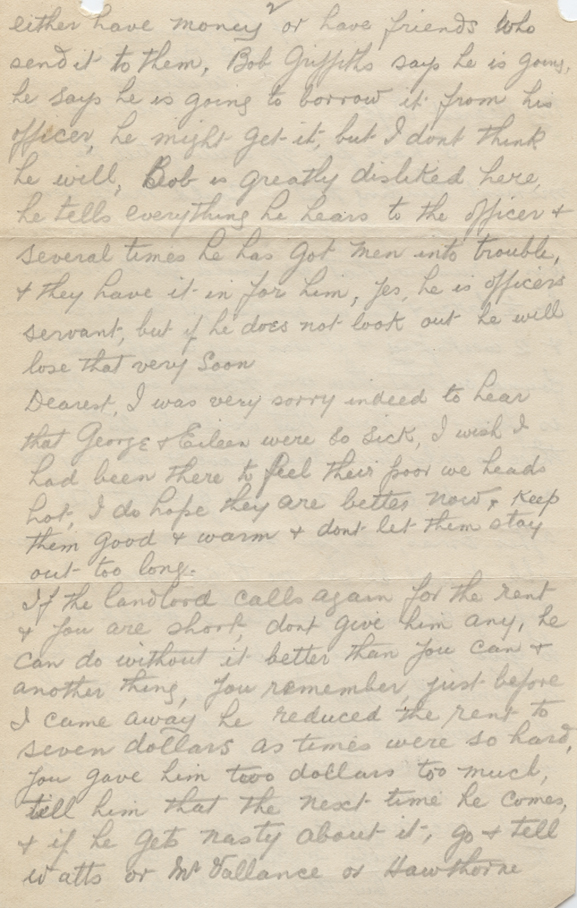 2
either have money or have friends who
send it to them, Bob Griffiths says he is going,
he says he is going to borrow it from his
officer, he might get it, but I dont think
he will, Bob is greatly disliked here,
he tells everything he hears to the officer &
several times he has got men into trouble,
& they have it in for him, yes, he is officers
servant, but if he does not look out he will
lose that very soon
Dearest, I was very sorry indeed to hear
that George & Eileen were so sick, I wish I
had been there to feel their poor we heads
hot, I do hope they are better now, & keep
them good & warm & dont let them stay
out too long.
If the landlord calls again for the rent
& you are short, dont give him any, he
can do without it better than you can &
another thing, you remember, just before
I came away he reduced the rent to
seven dollars as times were so hard,
you gave him two dollars too much,
tell him that the next time he comes,
& if he gets nasty about it, go & tell
Watts or Mr Vallance or Hawthorne